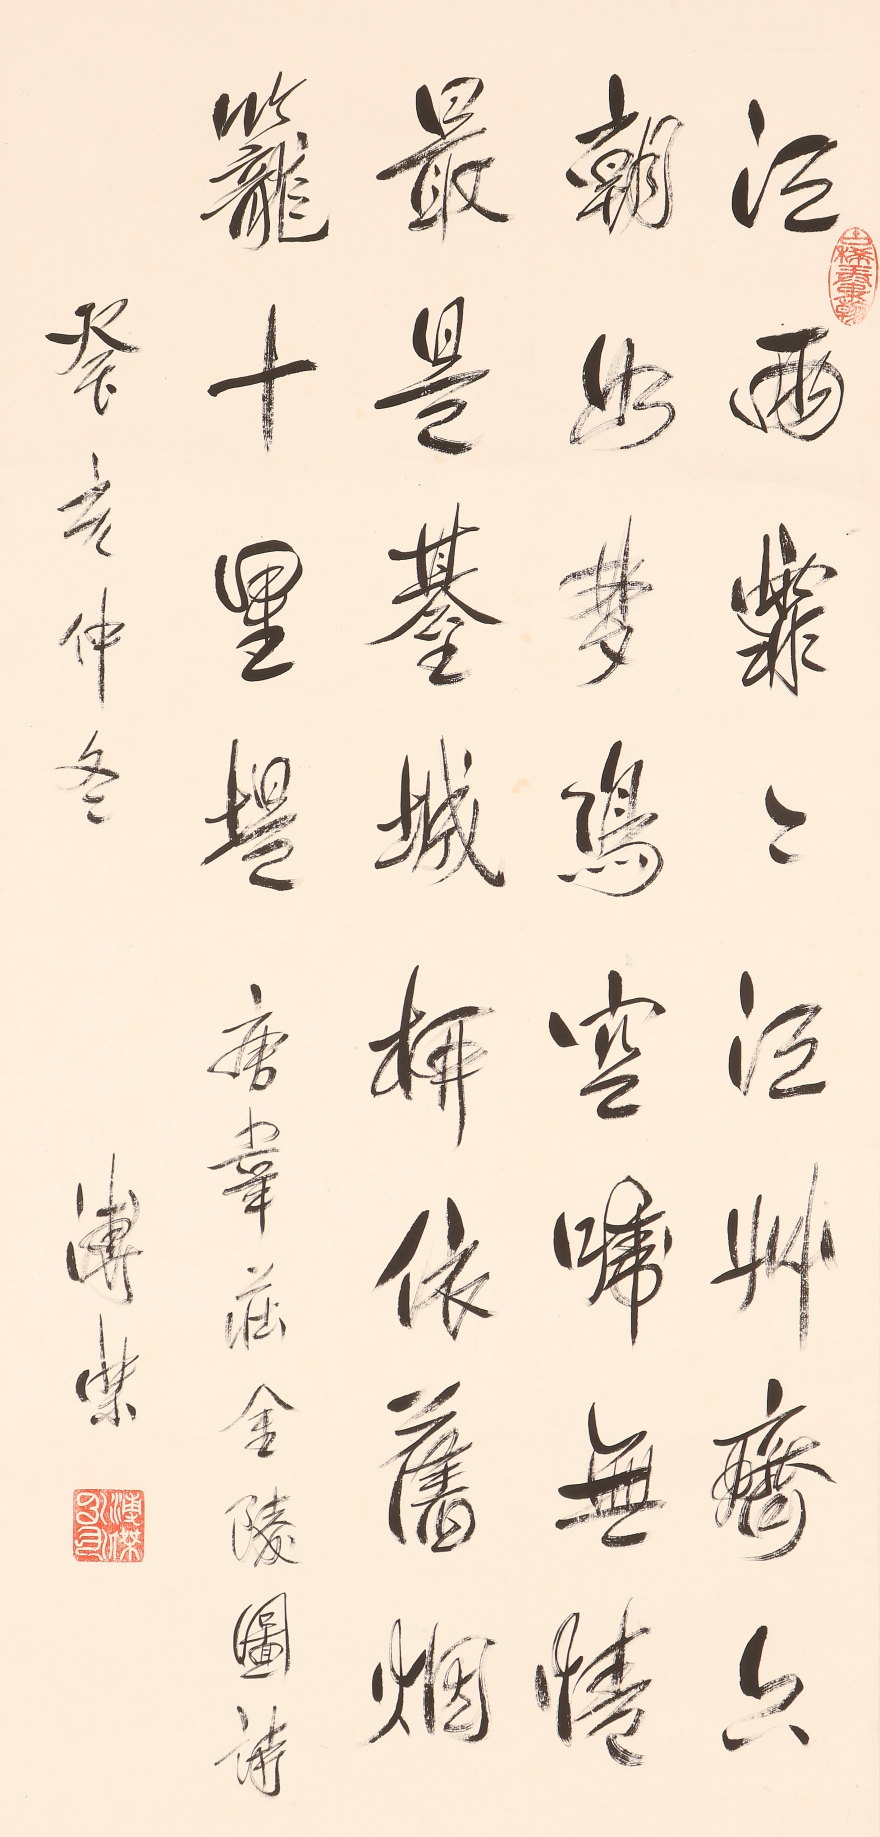 江雨霏〻江艸齊六
朝如夢鳥空啼無情
最是臺城柳依舊烟
籠十里堤 唐韋莊金陵圖詩
癸亥仲冬 溥傑
溥傑